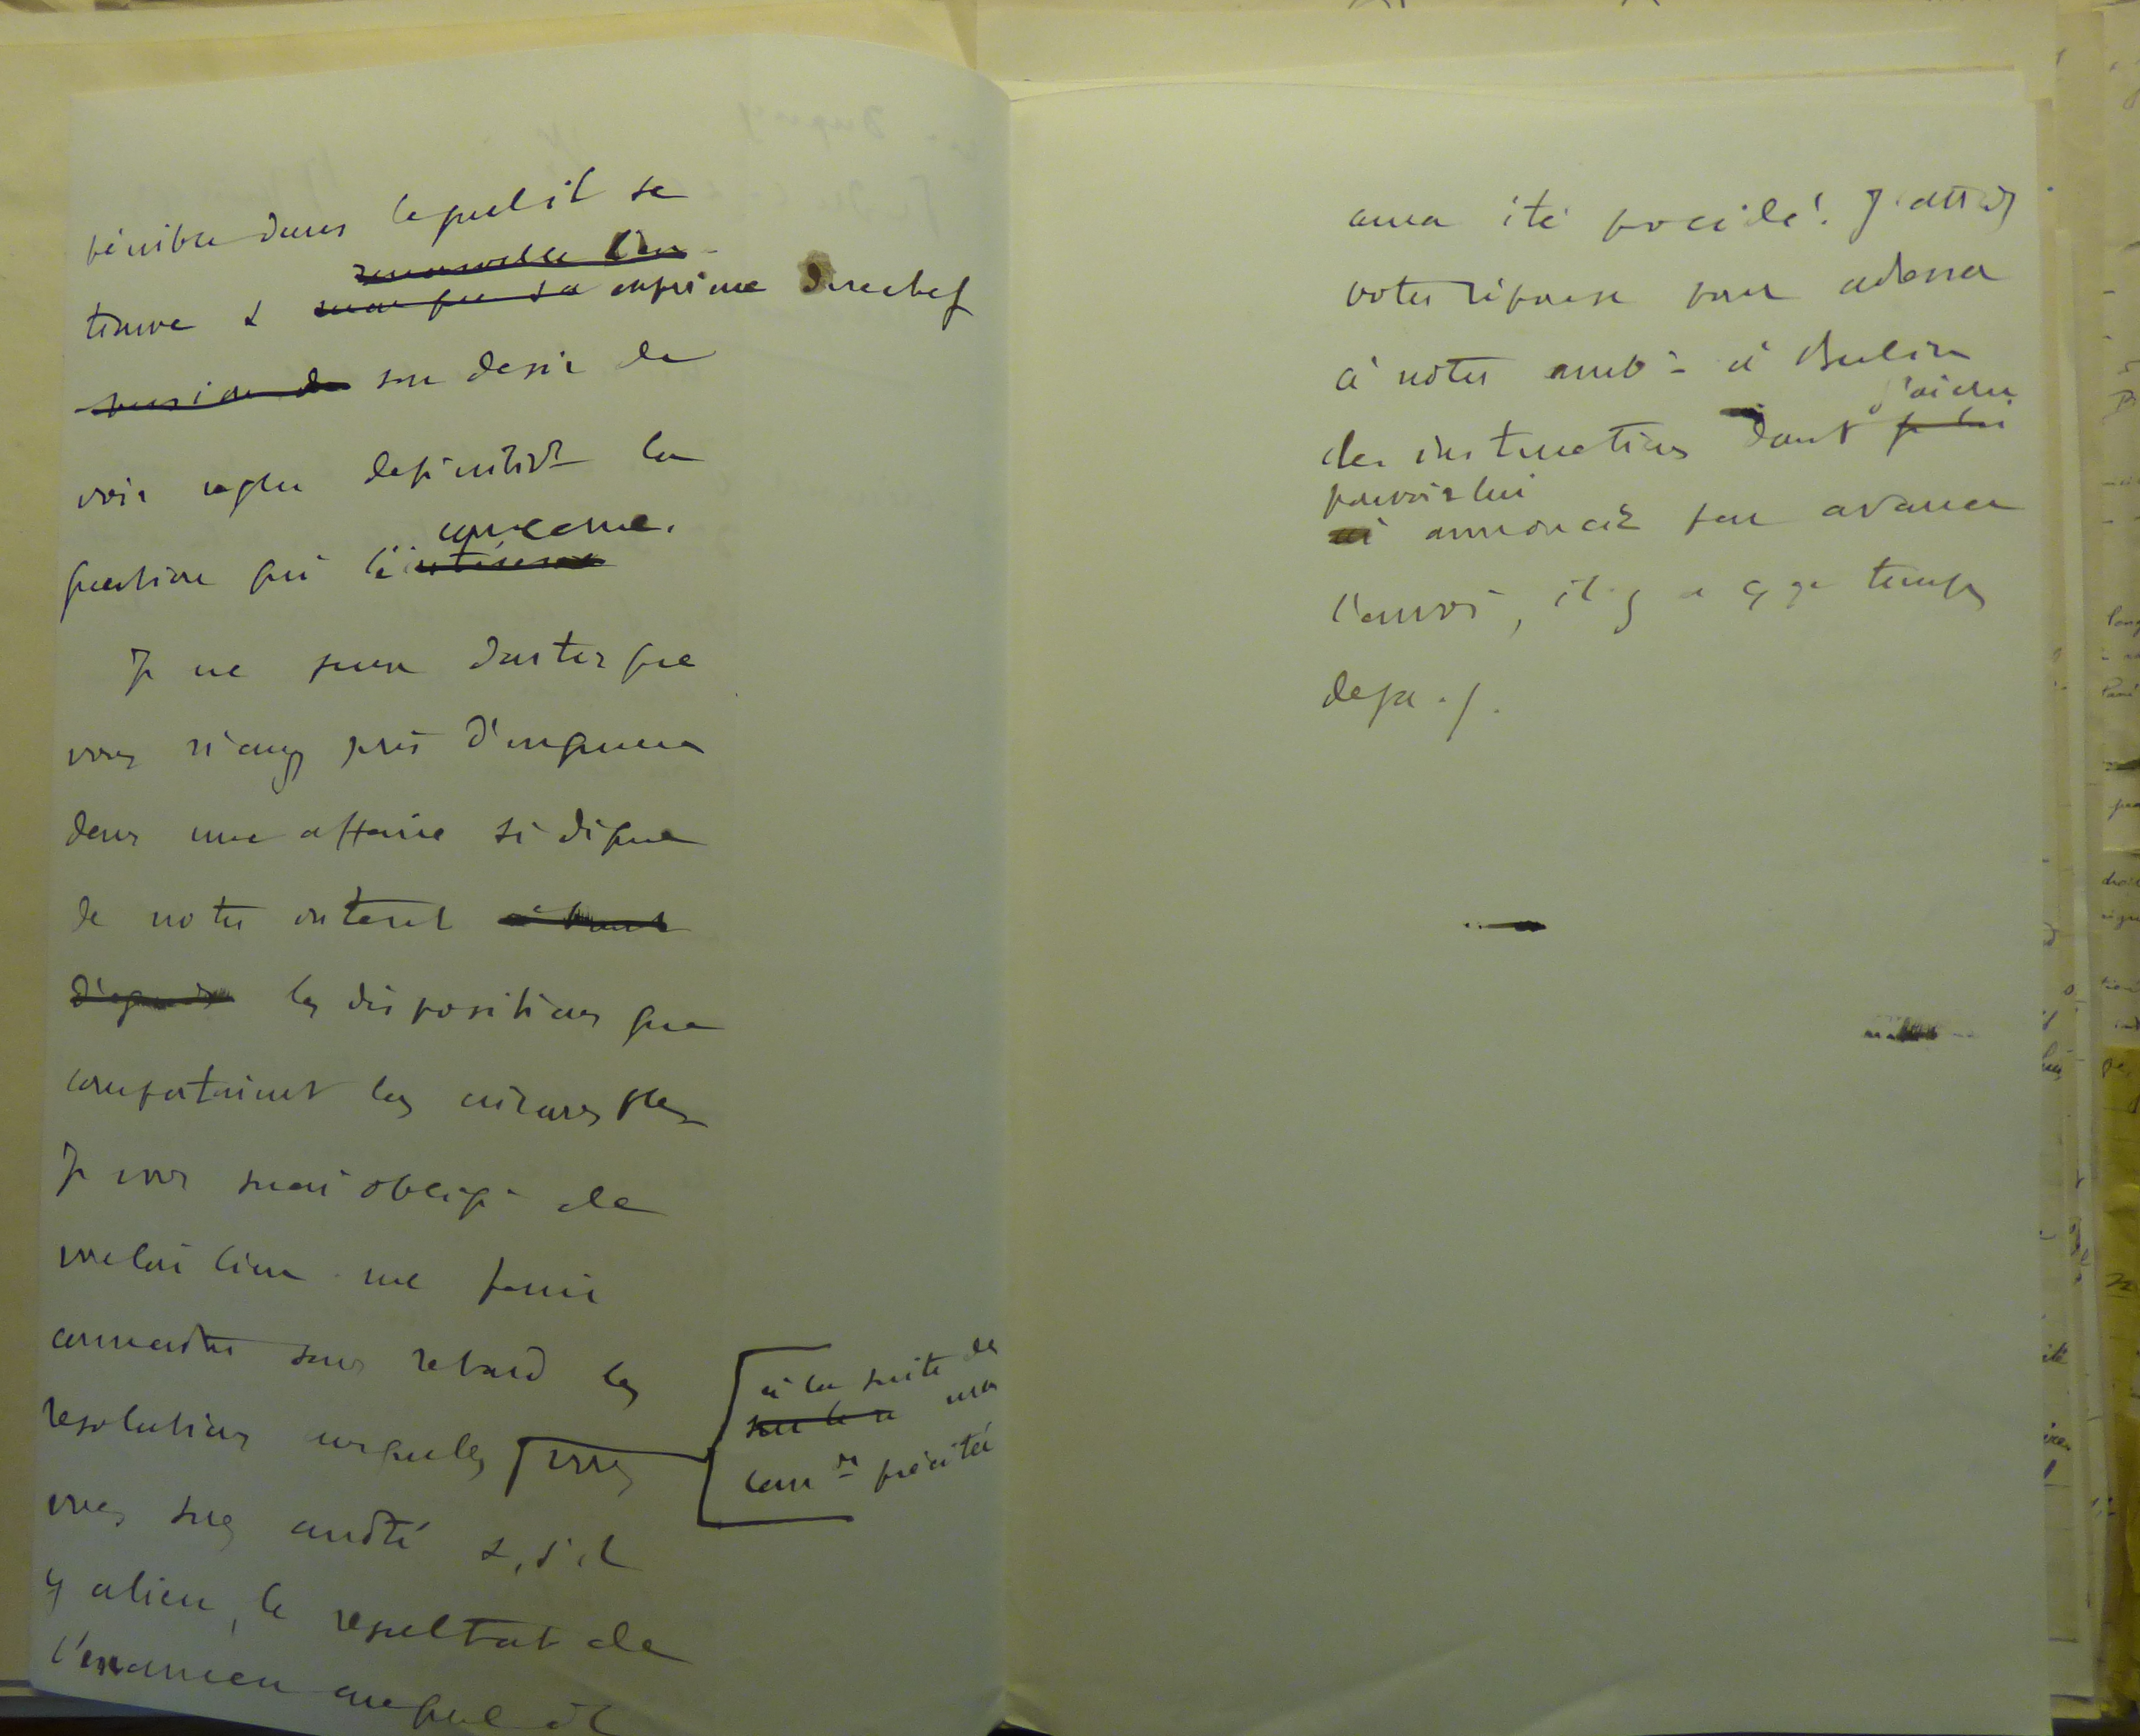 pénible dans lequel il se
trouve & exprime derechef
son désir de
voir régler définitivt la
question qui le concerne.
Je ne puis douter que
vous n'ayez pris d'urgence
dans une affaire si digne
de notre intérêt
les dispositions que
comportaient les circonstces
Je vous serai obligé de
vouloir bien me faire
connaître sans retard les
résolutions auxquelles
à la suite de
ma
précitée
vous vous serez arrêté &, s'il
y a lieu, le résultat de
l'examen auquel il
aura été procédé. J'attends
votre réponse pour adresser
à notre ambr à Berlin
des instructions dont j'ai cru
pouvoir lui
annoncer par avance
l'envoi, il y a qq temps
déjà ./.